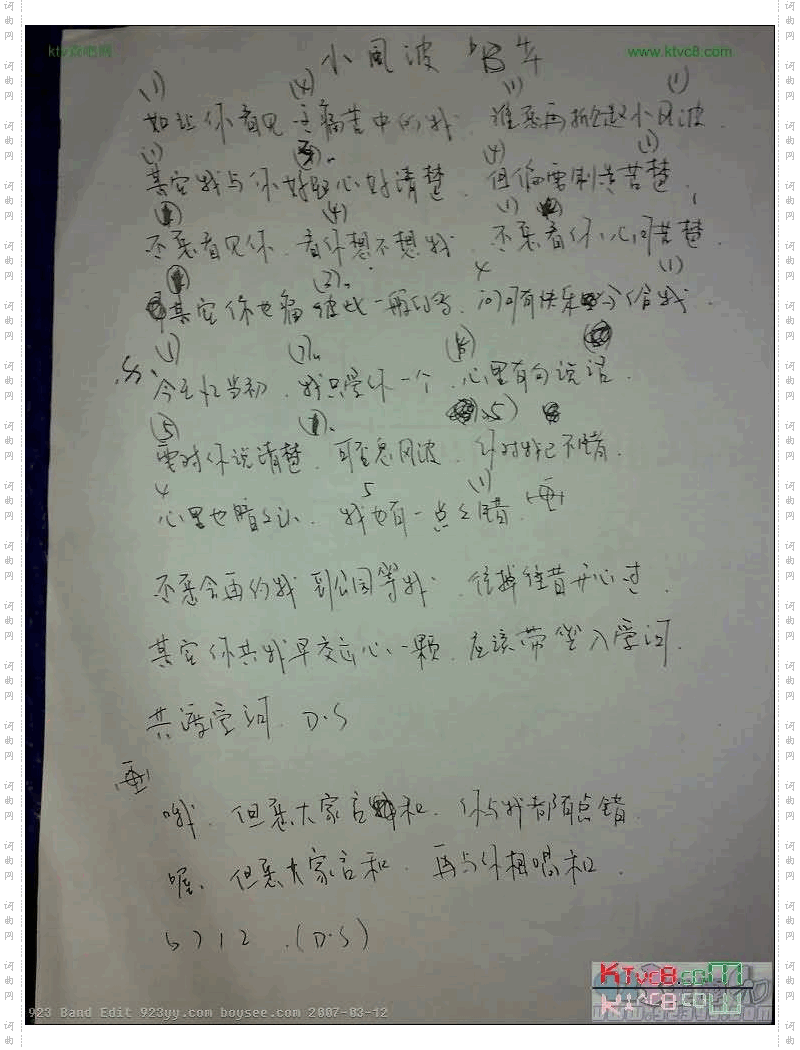 小风波 ♭B 4/4
ktv资吧网
www.ktvc8.com
(1) (4) (1) (1)
如让你看见 这痛苦中的我 谁愿再掀起小风波
(1) (4) (1)
其实我与你好歹心好清楚 但偏要制造苦楚
(4) (1)
不愿看见你 看你想不想我 不愿看你心间苦楚
(2) 4 (1)
其实你也痛 彼此一般的 问可有快乐分给我
今天忆当初 我只爱你一个 心里有句说话
(5) 5)
要对你说清楚 可否息风波 你对我已不错
4 5 (1)
心里也暗暗认 我也有一点点错 再
不愿令再约我 到公园等我 往掉往昔开心过
其实你共我早交出心一颗 应该带些入爱河
共渡爱河 D.S
再
哦 但愿大家言和 你与我都有点错
喔 但愿大家言和 再与你相唱和
5 7 1 2 (D.S)
KTvc8.com
KTvc8.com
923 Band Edit 923yy.com boysee.com 2007-03-12
词曲网